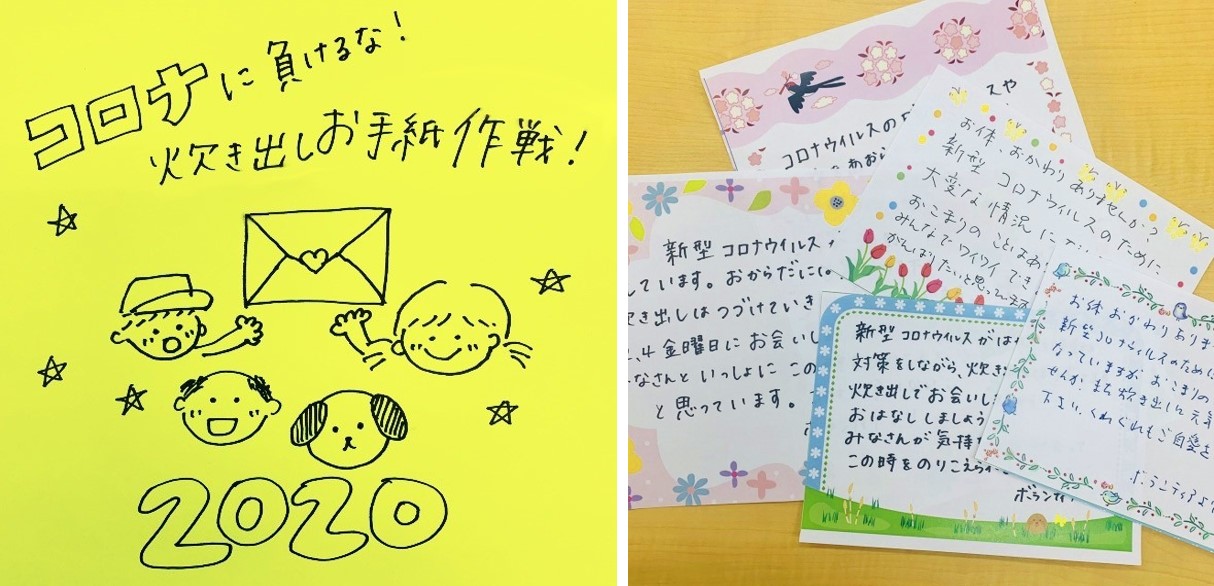 コロナに負けるな！
炊き出しお手紙作戦！
2020
コロナウイルスの
新型コロナウイルス
ています。おからだに
き出しはつづけていき
4金曜日にお会いし
なさんといっしょにこの
と思っています。
お体、おかわりありませんか？
新型コロナウイルスのために
大変な情況に
おこまりのことはあり
みんなでワイワイでき
がんばりたいと思ってます
新型コロナウイルスがは
対策をしながら、炊き
炊き出しでお会いし
おはなししましょう
みなさんが気持
この時をのりこえられ
ボランティ
お体おかわりありま
新型コロナウイルスのために
なっていますが、おこまりの
せんか。また炊き出しに元気
下さい。くれぐれもご自愛さ
ボランティアより